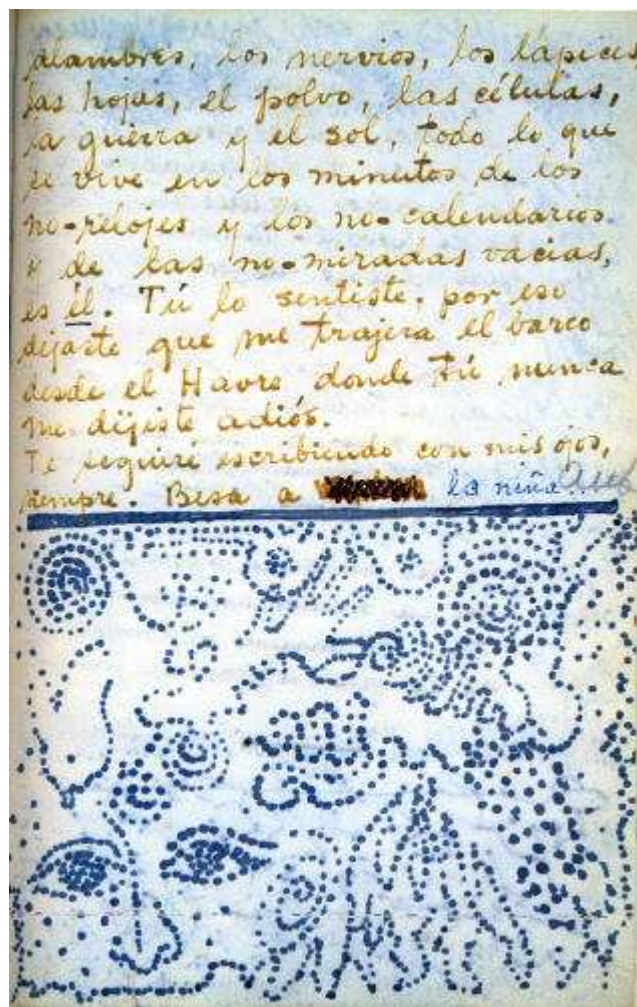 alambres, los nervios, los lápices,
las hojas, el polvo, las células,
la guerra y el sol, todo lo que
se vive en los minutos de los
no-relojes y los no-calendarios
y de las no-miradas vacias,
es él. Tú lo sentiste, por eso
dejaste que me trajera el barco
desde el Havre donde tú nunca
me dijiste adiós.
Te seguiré escribiendo con mis ojos,
siempre. Besa a la niña